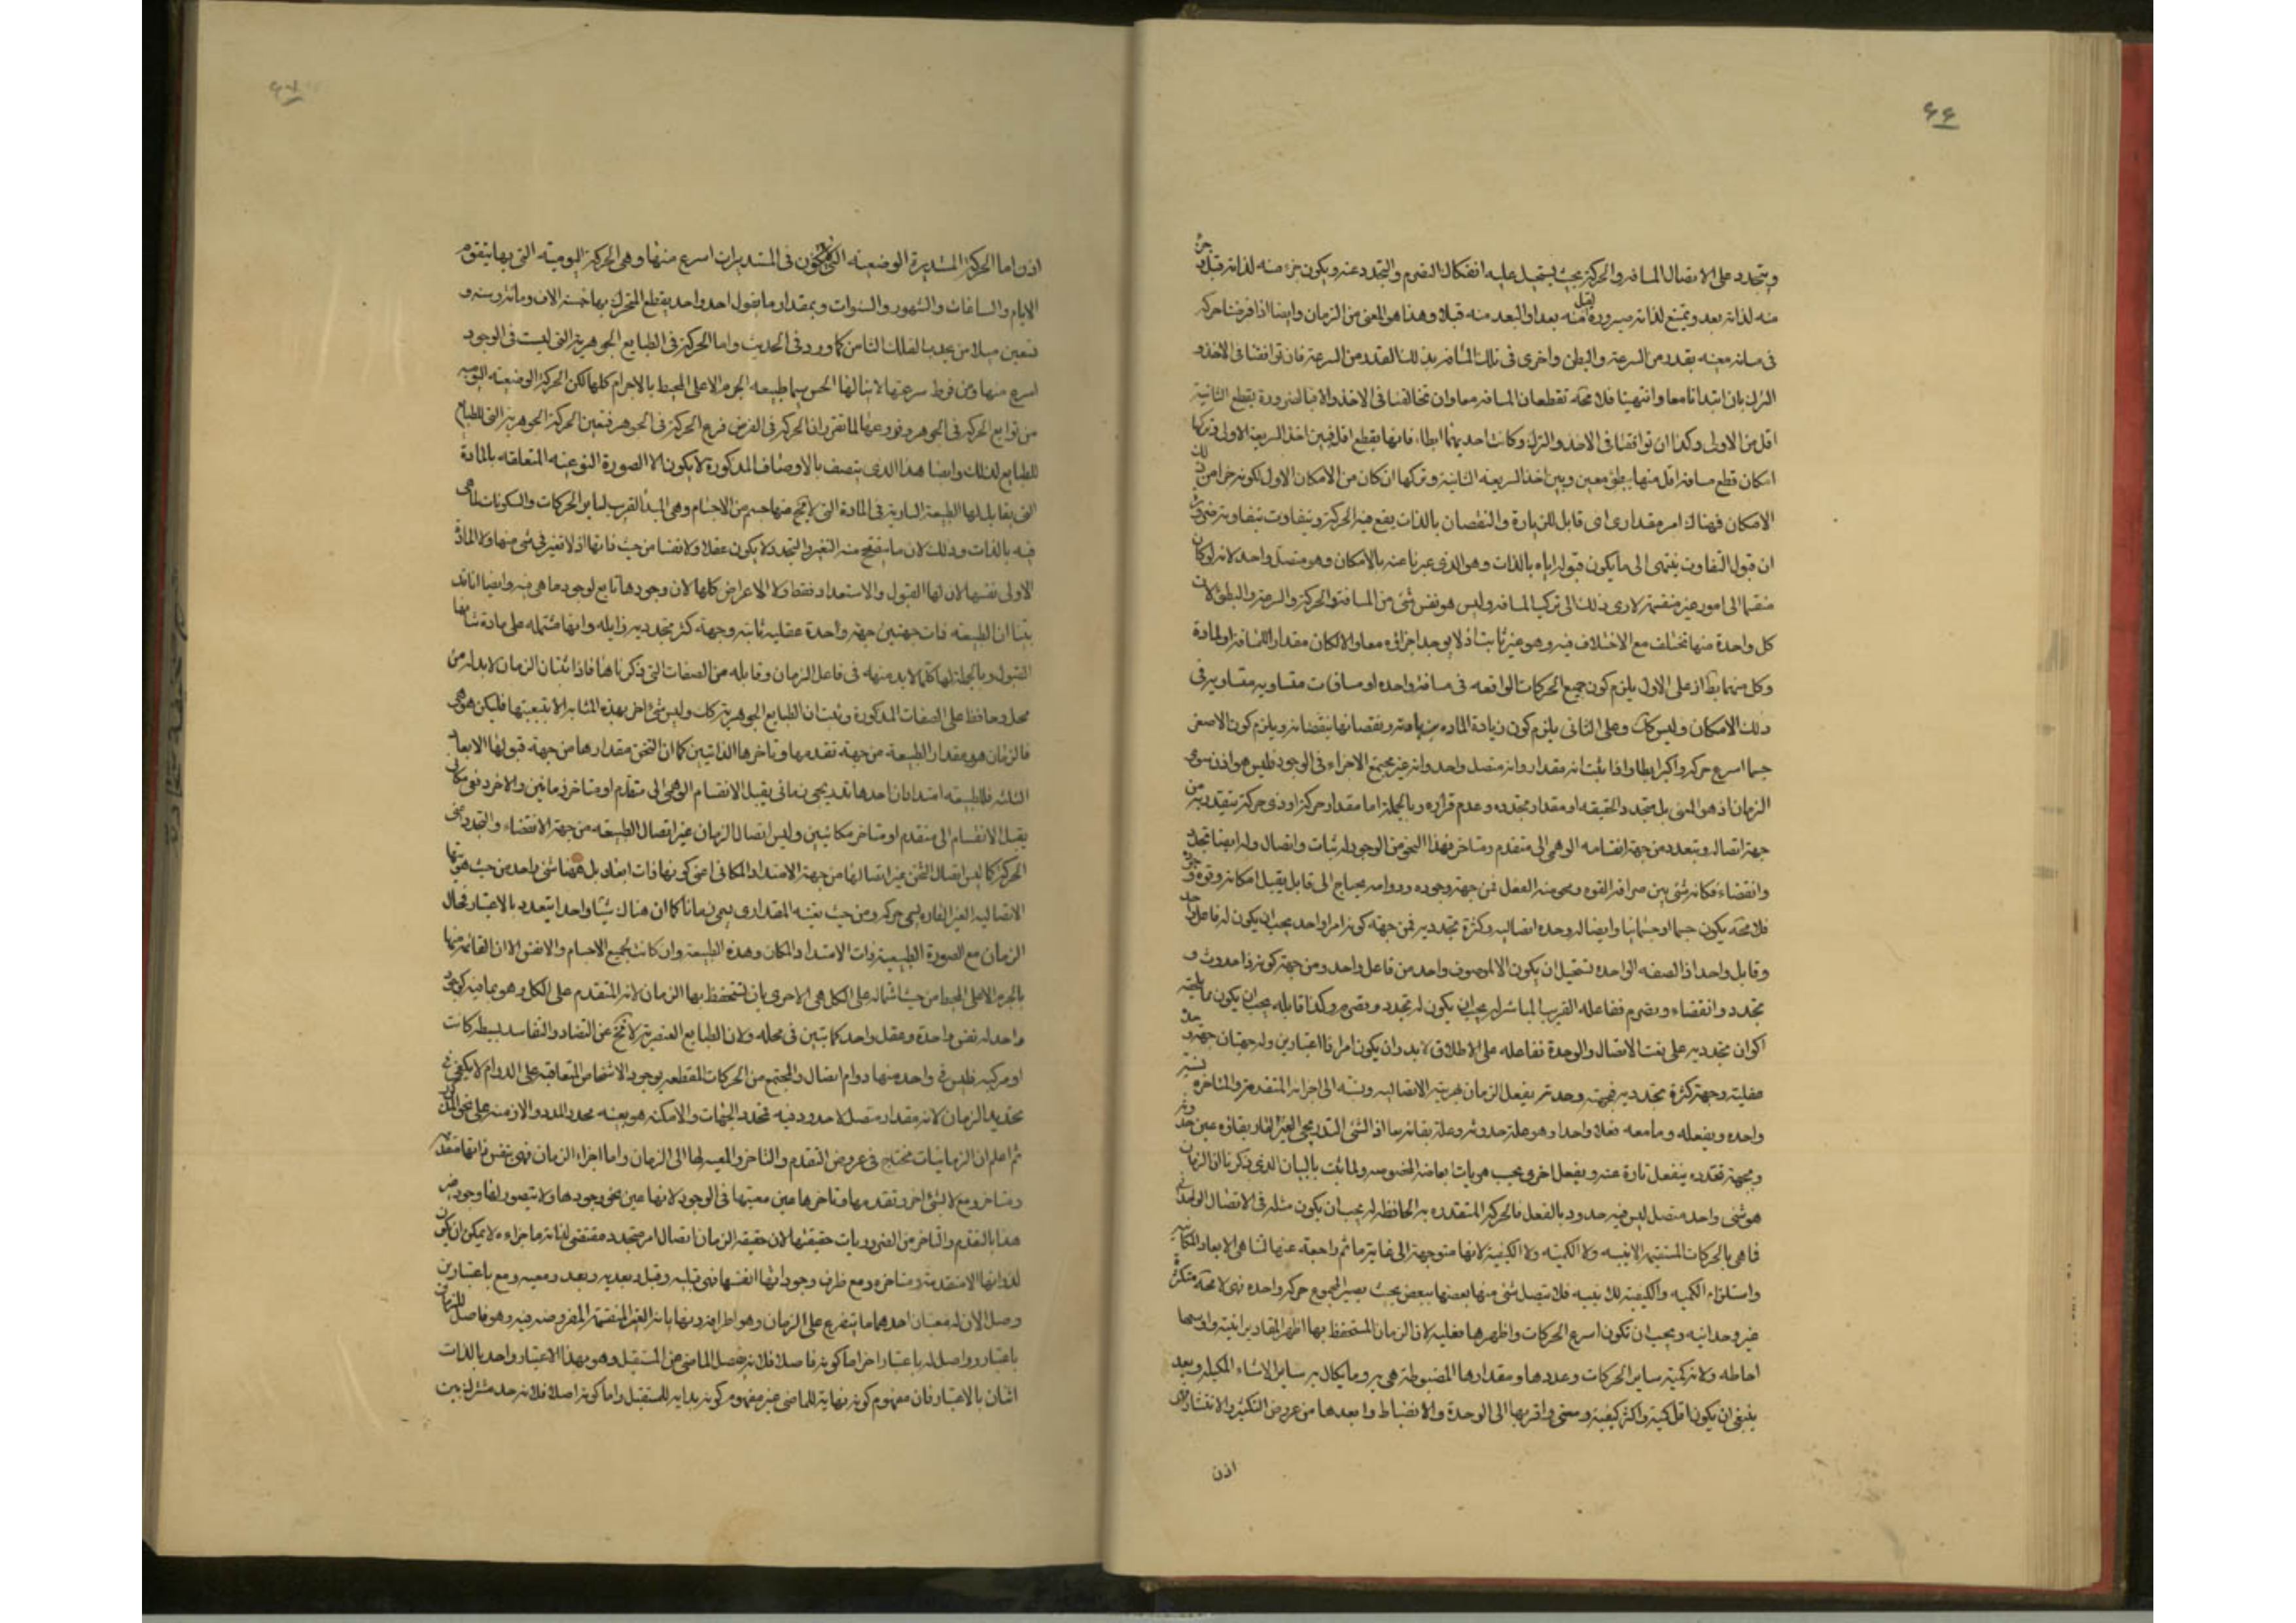 ٤٤
ويتجدد على الاتصال المسافه والحركة بحيث يستحيل عليه انفكاك التصرم والتجدد عنه ويكون جزء منه لذاته قبل جزء
منه لذاته بعد ويمتنع لذاته صيرورة قبل منه بعدا والبعد منه قبلا وهذا هو المعنى من الزمان وايضا اذا فرضنا حركة
فى مسافة معينه بقدر من السرعة والبطئ واخرى فى تلك المسافة بذلك القدر من السرعة فان توافقتا فى الاخذ و
الترك بان ابتدأتا معا وانتهيتا فلا محة تقطعان المسافه معا وان تخالفتا فى الاخذ والضرورة يقطع الثانية
اقل من الاولى وكذا ان توافقتا فى الاخذ والترك وكانت احديهما ابطاء فانها يقطع اقل فبين اخذ السريعة الاولى وتركها
امكان قطع مسافة اقل منها ببطؤ معين وبين اخذ السريعه الثانية وتركها امكان من الامكان الاول لكونه جزء من ذلك
الامكان فهناك امر مقدارى اى قابل للزيادة والنقصان بالذات يقع فيه الحركة ويتفاوت بتفاوته ضرورة
ان قبول التفاوت ينتهى الى ما يكون قبوله اياه بالذات وهو الذى عبرنا عنه بالامكان وهو متصل واحد لانه لو كان
منقسما الى امور غير منقسمة لادى ذلك الى تركب المسافه وليس هو نفس شئ من المسافة والحركة والسرعة والبطؤ لان
كل واحدة منها تختلف مع الاختلاف فيه وهو غير ثابت اذ لا يوجد اجزاؤه معا والا لكان مقدارا للمسافة او لمادة
وكل منهما بط اذ على الاول يلزم كون جميع الحركات الواقعه فى مسافة واحده او مسافات متساويه متساويه فى
ذلك الامكان وليس كك وعلى الثانى يلزم كون زيادة الماده بزيادته ونقصانها بنقصانه ويلزم كون الاصغر
جسما اسرع حركه واكبر ابطا واذا ثبت انه مقدار وانه متصل واحد وانه غير مجتمع الاجزاء فى الوجود فليس هو اذن سوى
الزمان اذ هو المعنى بل متجدد الحقيقه او مقدار متجدده وعدم قراره وبالجملة اما مقدار حركة او ذى حركة يتقدر به من
جهة اتصاله ويتعدد من جهة انقسامه الوهمى الى متقدم ومتاخر فهذا النحو من الوجود له ثبات واتصال وله ايضا تجدد
وانقضاء فكانه شئ بين صرافة القوه ومحوضة الفعل فمن جهة وجوده ودوامه يحتاج الى قابل يقبل امكانه وقوة وجوده
فلا محة يكون جسما او جسمانيا وايضا له وحدة اتصاليه وكثرة تجدديه فمن جهة كونه امرا واحدا يجب ان يكون له فاعل واحد
وقابل واحد اذ الصفه الواحدة تستحيل ان يكون الا لموصوف واحد من فاعل واحد ومن جهة كونه ذا حدوث و
تجدد وانقضاء وتصرم ففاعله القريب المباشر له يجب ان يكون له تجدد وتصرم وكذا قابله يجب ان يكون
اكوان تجدديه على نعت الاتصال والوحدة ففاعله على الاطلاق لابد وان يكون امرا ذا اعتبارين وله جهتان جهة وحدة
عقلية وجهة كثرة تجدديه فبجهة وحدته يفعل الزمان بهويته الاتصاليه ونسبته الى اجزائه المتقدمة والمتاخرة نسبة
واحده ويفعله وما معه فعلا واحدا وهو علة حدوثه وعلة بقائه معا اذ الشئ التدريجى الغير القار بقاؤه عين حدوثه
وبجهة تجدده ينفعل تارة عنه ويفعل اخرى بحسب هويات ابعاضه المخصوصه ولما ثبت بالبيان الذى ذكرنا ان الزمان
هو شئ واحد متصل ليس فيه حدود بالفعل فالحركة المتقدره به الحافظة له يجب ان يكون مثله فى الاتصال الوحدانى
فما هى بالحركات المستقيمه الاينيه ولا الكميّه ولا الكيفية لانها متوجهة الى غاية ما ثم راجعة عنها لتناهى الابعاد المكانيه
واستلزام الكميه والكيفية للاينيه فلا تتصل شئ منها بعضها ببعض بحيث يصير المجموع حركه واحده فهى لا محة متكثرة
غير وحدانيه ويجب ان تكون اسرع الحركات واظهرها فعلية لان الزمان المستحفظ بها اظهر المقادير انية واوسعها
احاطه ولانه كمية ساير الحركات وعددها ومقدارها المضبوطة هى به وما يكال به ساير الاشياء المكيله ويعد
ينبغى ان يكون اقل كمية واكثر كيفية وسعى واقربها الى الوحدة والانضباط وابعدها من عروض التكثر والانتشار
اذن
٤٧
اذن اما الحركة المستديرة الوضعيه التى لا يكون فى المستديرات اسرع منها وهى الحركة اليومية التى بها يتقوم
الايام والساعات والشهور والسنوات وبمقدار ما يقول احد واحد يقطع المتحرك بها خمسة الاف ومائة وستة و
تسعين ميلا من محدب الفلك الثامن كما ورد فى الحديث واما الحركة فى الطبايع الجوهرية التى ليست فى الوجود
اسرع منها ومن فرط سرعتها لا ينالها الحس سيما طبيعه الجرم الاعلى المحيط بالاجرام كلها لكن الحركة الوضعيه اليوميه
من توابع الحركة فى الجوهر وفروعها لما تقرر ان الحركة فى العرض فرع الحركة فى الجوهر فتعين الحركة الجوهرية التى للطبايع
للطبايع لذلك وايضا هذا الذى يتصف بالاوصاف المذكورة لا يكون الا الصورة النوعيه المتعلقه بالمادة
التى يقابلها الطبيعة السارية فى المادة التى لا يخ منها جسم من الاجسام وهى المبدأ القريب لساير الحركات والسكونات لما هى
فيه بالذات وذلك لان ما ينفتح منه التغير والتجدد لا يكون عقلا ولا نفسا من حيث ذاتها اذ لا تغير فى شئ منها ولا المادة
الاولى نفسها لان لها القبول والاستعداد فقط ولا الاعراض كلها لان وجودها تابع لوجود ما هى فيه وايضا انا قد
بينا ان الطبيعه ذات جهتين جهة واحدة عقليه ثابته وجهة كثر تجدديه زايله وانها مشتمله على مادة شانها
القبول وبالجملة لها كلما لابد منه فى فاعل الزمان وقابله من الصفات التى ذكرناها فاذا ثبت ان الزمان لابد له من
محل وحافظ على الصفات المذكورة وثبت ان الطبايع الجوهرية كك وليس شئ اخر بهذه المثابه الا بتبعيتها فليكن هى هى
فالزمان هو مقدار الطبيعة من جهة تقدمها وتاخرها الذاتيين كما ان التخن مقدارها من جهة قبولها الابعاد
الثلثه فللطبيعه امتدادان احدهما تدريجى زمانى يقبل الانقسام الوهمى الى متقدم ومتاخر زمانيين والاخر دفعى مكانى
يقبل الانقسام الى متقدم ومتاخر مكانيين وليس اتصال الزمان غير اتصال الطبيعه من جهة الانقضاء والتجدد
الحركة كما ليس اتصال التخن غير اتصالها من جهة الامتداد المكانى اعنى كونها ذات ابعاد بل هنا شئ واحد من حيث هويتها
الاتصاليه الغير القاره يسمى حركه ومن حيث تعينه المقدارى يسمى زمانا كما ان هناك شيئا واحدا يتعدد بالاعتبار فحال
الزمان مع الصورة الطبيعية ذات الامتداد المكان وهذه الطبيعة وان كانت لجميع الاجسام والانفس الا ان القائمة منها
بالجرم الاعلى المحيط من حيث اشتماله على الكل هى الاحرى بان تستحفظ بها الزمان لانه المتقدم على الكل وهو بما فيه كوجود
واحد له نفس واحدة وعقل واحد كما تبين فى محله ولان الطبايع العنصرية لا تخ عن التضاد والتفاسد بسيطه كانت
او مركبه فليس فى واحده منها دوام اتصال والمجتمع من الحركات المنقطعه بوجود الاشخاص المتعاقبه على الدوام لا يكفى فى
تحديد الزمان لانه مقدار متصل لا حدود فيه محدد الجهات والامكنه هو بعينه محدد المدد والازمنه على نحو
ثم اعلم ان الزمانيات محتاج فى عروض التقدم والتاخر والمعيه لها الى الزمان واما اجزاء الزمان فهى بنفس ذاتها متقدمه
ومتاخره ومع لا بشئ اخر وتقدمها وتاخرها عين معيتها فى الوجود لانها عين نحو وجودها ولا يتصور لها وجود
هذا بالتقدم والتاخر من الضروريات حقيقتها لان حقيقه الزمان اتصال امر متجدد مقتضى لذاته ما اجزاءه لا يمكن ان يكون
لذواتها الا متقدمة ومتاخره ومع ظرف وجوداتها انفسها فهى قبليه وقبل وبعديه وبعد ومعيه ومع باعتبارين
وصل الان له معنيان احدهما ما يتفرع على الزمان وهو اطرافه ونهاياته الغير المنقسمة المفروضه فيه وهو فاصل للزمان
باعتبار وواصل له باعتبار اخر اما كونه فاصلا فلانه يفصل الماضى عن المستقبل وهو بهذا الاعتبار واحد بالذات
اثنان بالاعتبار فان مفهوم كونه نهاية للماضى غير مفهوم كونه بدايه للمستقبل واما كونه واصلا فلانه حد مشترك بين